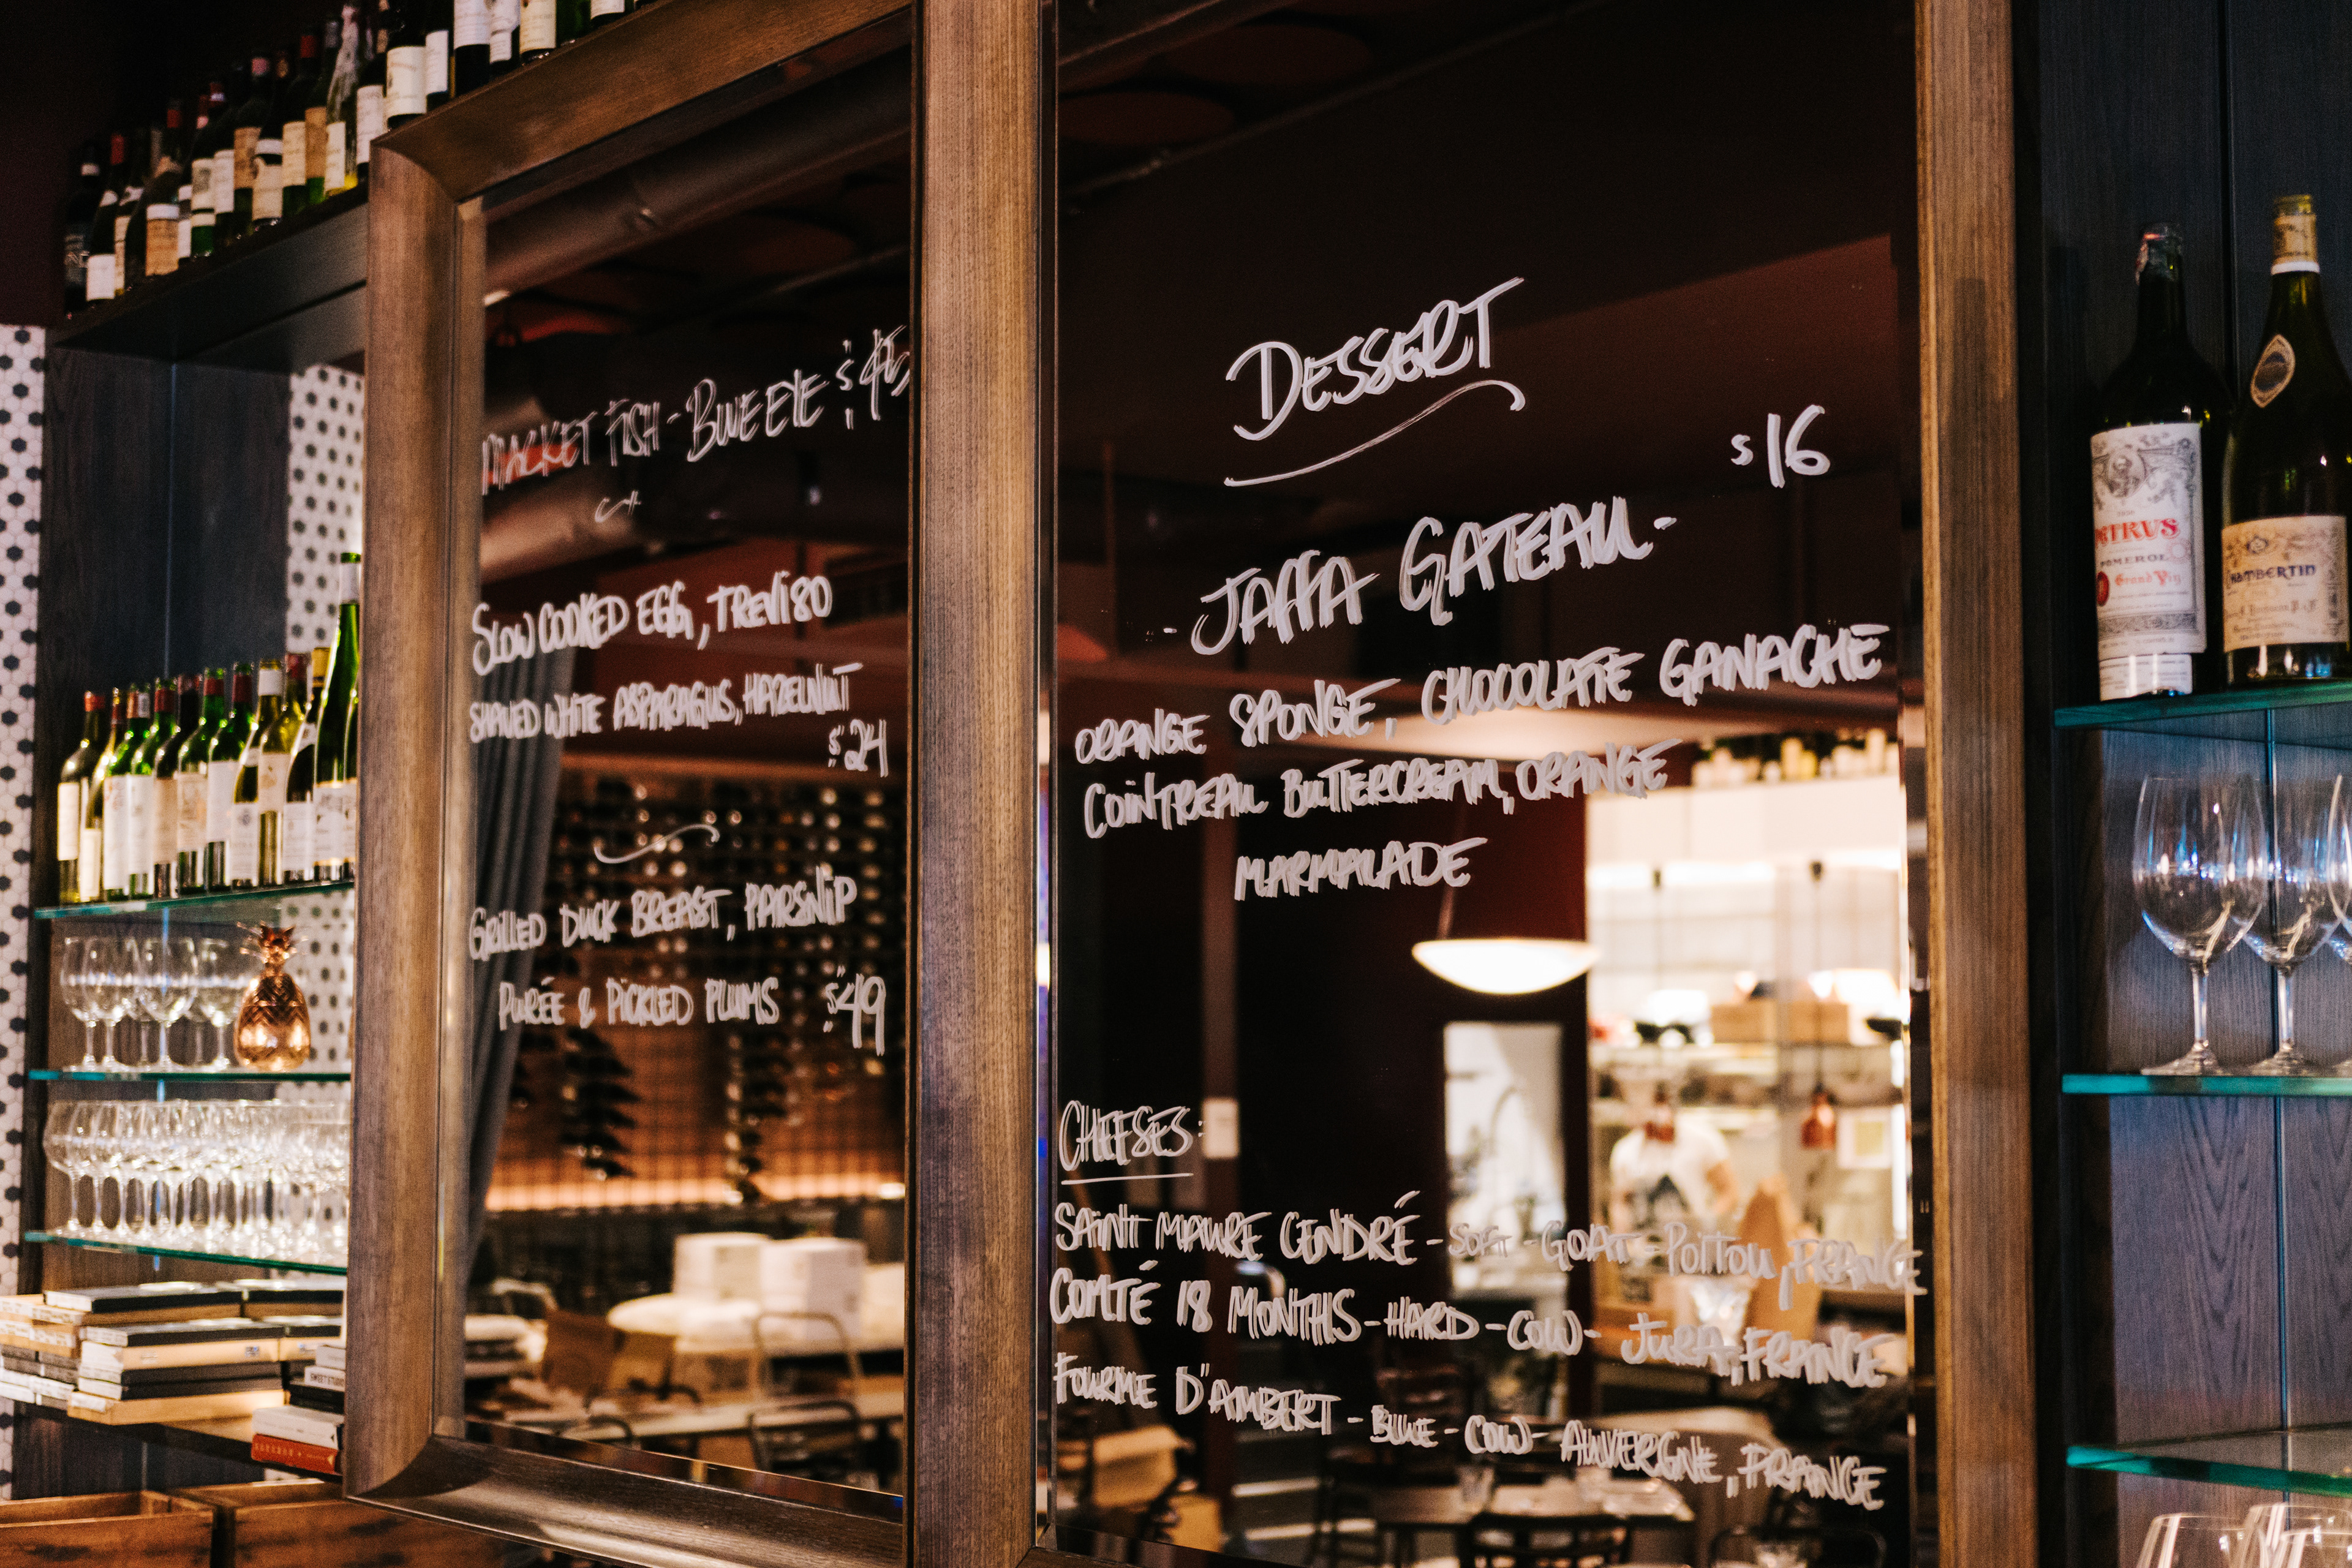 MARKET FISH - BLUE EYE $45
SLOW COOKED EGG, TREVISO
SHAVED WHITE ASPARAGUS, HAZELNUT
$24
GRILLED DUCK BREAST, PARSNIP
PURÉE & PICKLED PLUMS $49
DESSERT
$16
- JAFFA GATEAU -
ORANGE SPONGE, CHOCOLATE GANACHE
COINTREAU BUTTERCREAM, ORANGE
MARMALADE
CHEESES:
SAINT MAURE CENDRÉ - SOFT - GOAT - POITOU, FRANCE
COMTÉ 18 MONTHS - HARD - COW - JURA, FRANCE
FOURME D'AMBERT - BLUE - COW - AUVERGNE, FRANCE
PETRUS
POMEROL
Grand Vin